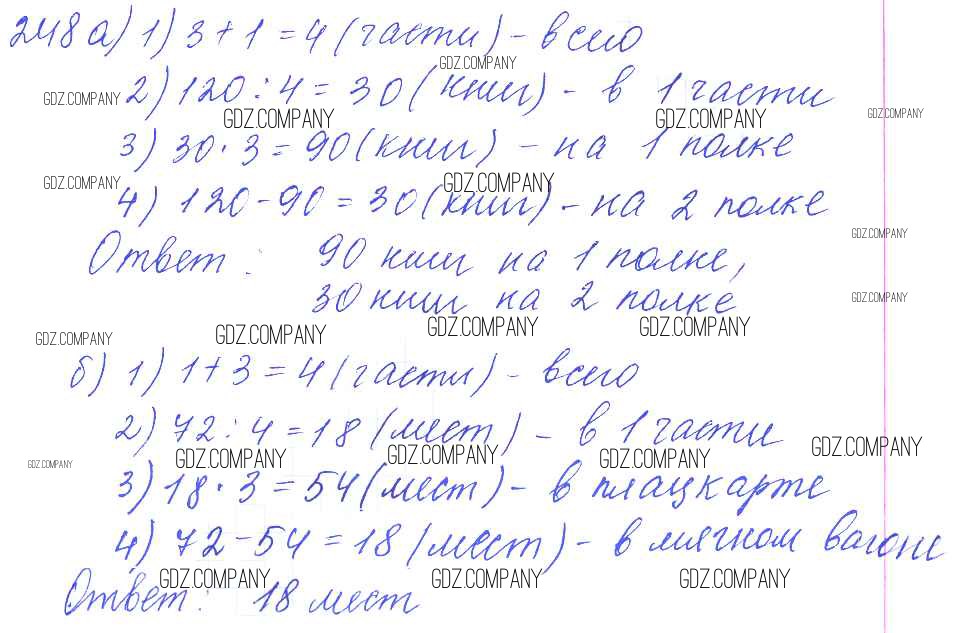 248 а) 1) 3 + 1 = 4 (части) - всего
GDZ.COMPANY
GDZ.COMPANY 2) 120 : 4 = 30 (книг) - в 1 части
GDZ.COMPANY GDZ.COMPANY GDZ.COMPANY
3) 30 · 3 = 90 (книг) - на 1 полке
GDZ.COMPANY GDZ.COMPANY
4) 120 - 90 = 30 (книг) - на 2 полке
GDZ.COMPANY
Ответ: 90 книг на 1 полке,
30 книг на 2 полке
GDZ.COMPANY
GDZ.COMPANY GDZ.COMPANY GDZ.COMPANY GDZ.COMPANY
б) 1) 1 + 3 = 4 (части) - всего
2) 72 : 4 = 18 (мест) - в 1 части
GDZ.COMPANY GDZ.COMPANY GDZ.COMPANY GDZ.COMPANY GDZ.COMPANY
3) 18 · 3 = 54 (мест) - в плацкарте
4) 72 - 54 = 18 (мест) - в мягком вагоне
GDZ.COMPANY GDZ.COMPANY GDZ.COMPANY
Ответ: 18 мест